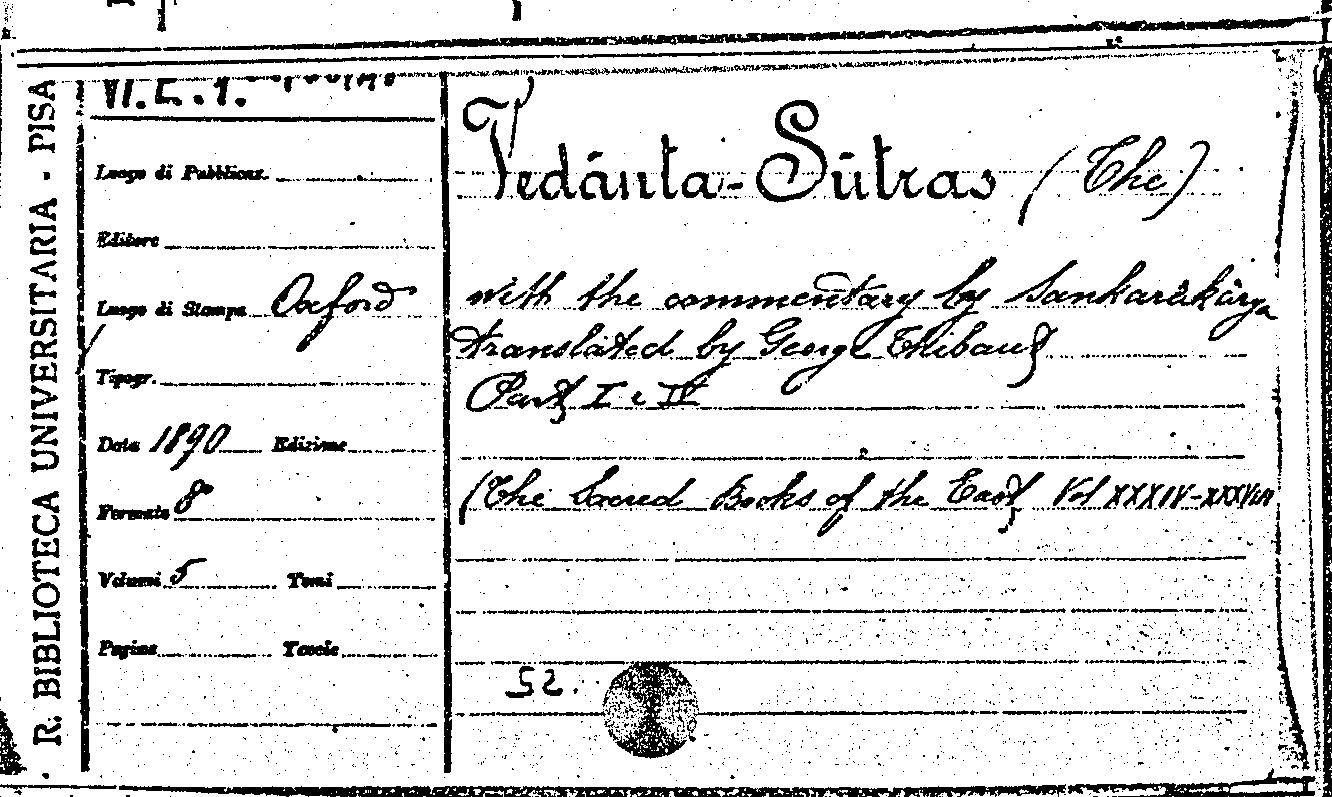 R. BIBLIOTECA UNIVERSITARIA - PISA
VI. E. 1.
Luogo di Pubblicaz.
Editore
Luogo di Stampa Oxford
Tipogr.
Data 1890 Edizione
Formato 8°
Volumi 5 Tomi
Pagine Tavole
Vedânta-Sûtras (The)
with the commentary by Sankarâkârya
translated by George Thibaut
Part I e II
(The Sacred Books of the East Vol XXXIV-XXXVIII
52.